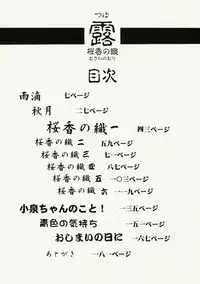 つゆ
露
桜香の織
おうかのおり
目次
雨滴 七ページ
秋月 二七ページ
桜香の織 一 四三ページ
桜香の織 二 五九ページ
桜香の織 三 七一ページ
桜香の織 四 八七ページ
桜香の織 五 一〇三ページ
桜香の織 六 一一九ページ
小泉ちゃんのこと! 一三五ページ
素色の気持ち 一五一ページ
おしまいの日に 一六七ページ
あとがき 一八一ページ